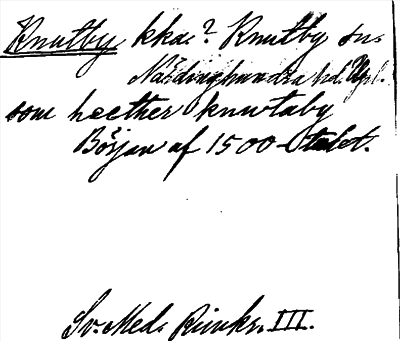 Knutby kka? Knutby sn.
Närdinghundra hd. Upl.
som heether knwtaby
Början af 1500-talet.
Sv. Med. Rimkr. III.